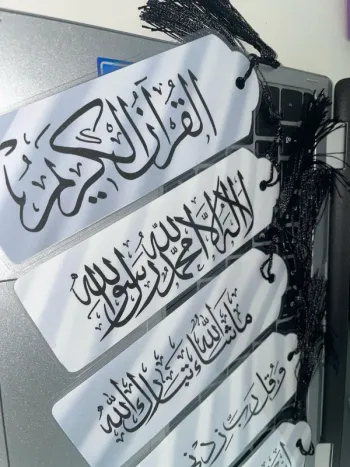 القرآن الكريم
لا إله إلا الله محمد رسول الله
ما شاء الله تبارك الله
وقل رب زدني